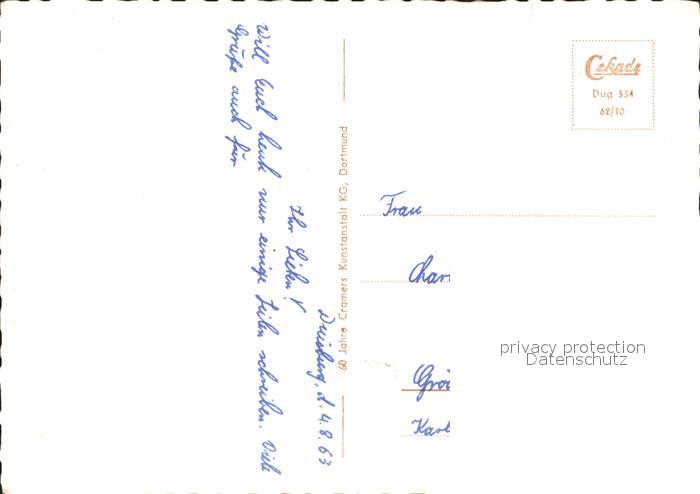 Duisburg, d. 4.8.63
Ihr Lieben!
Will Euch heute nur einige Zeilen schreiben. Viele
Grüße auch für
60 Jahre Cramers Kunstanstalt KG, Dortmund
Cekade
Dug 534
62/10
Frau
Char
Gröt
Karl
privacy protection
Datenschutz